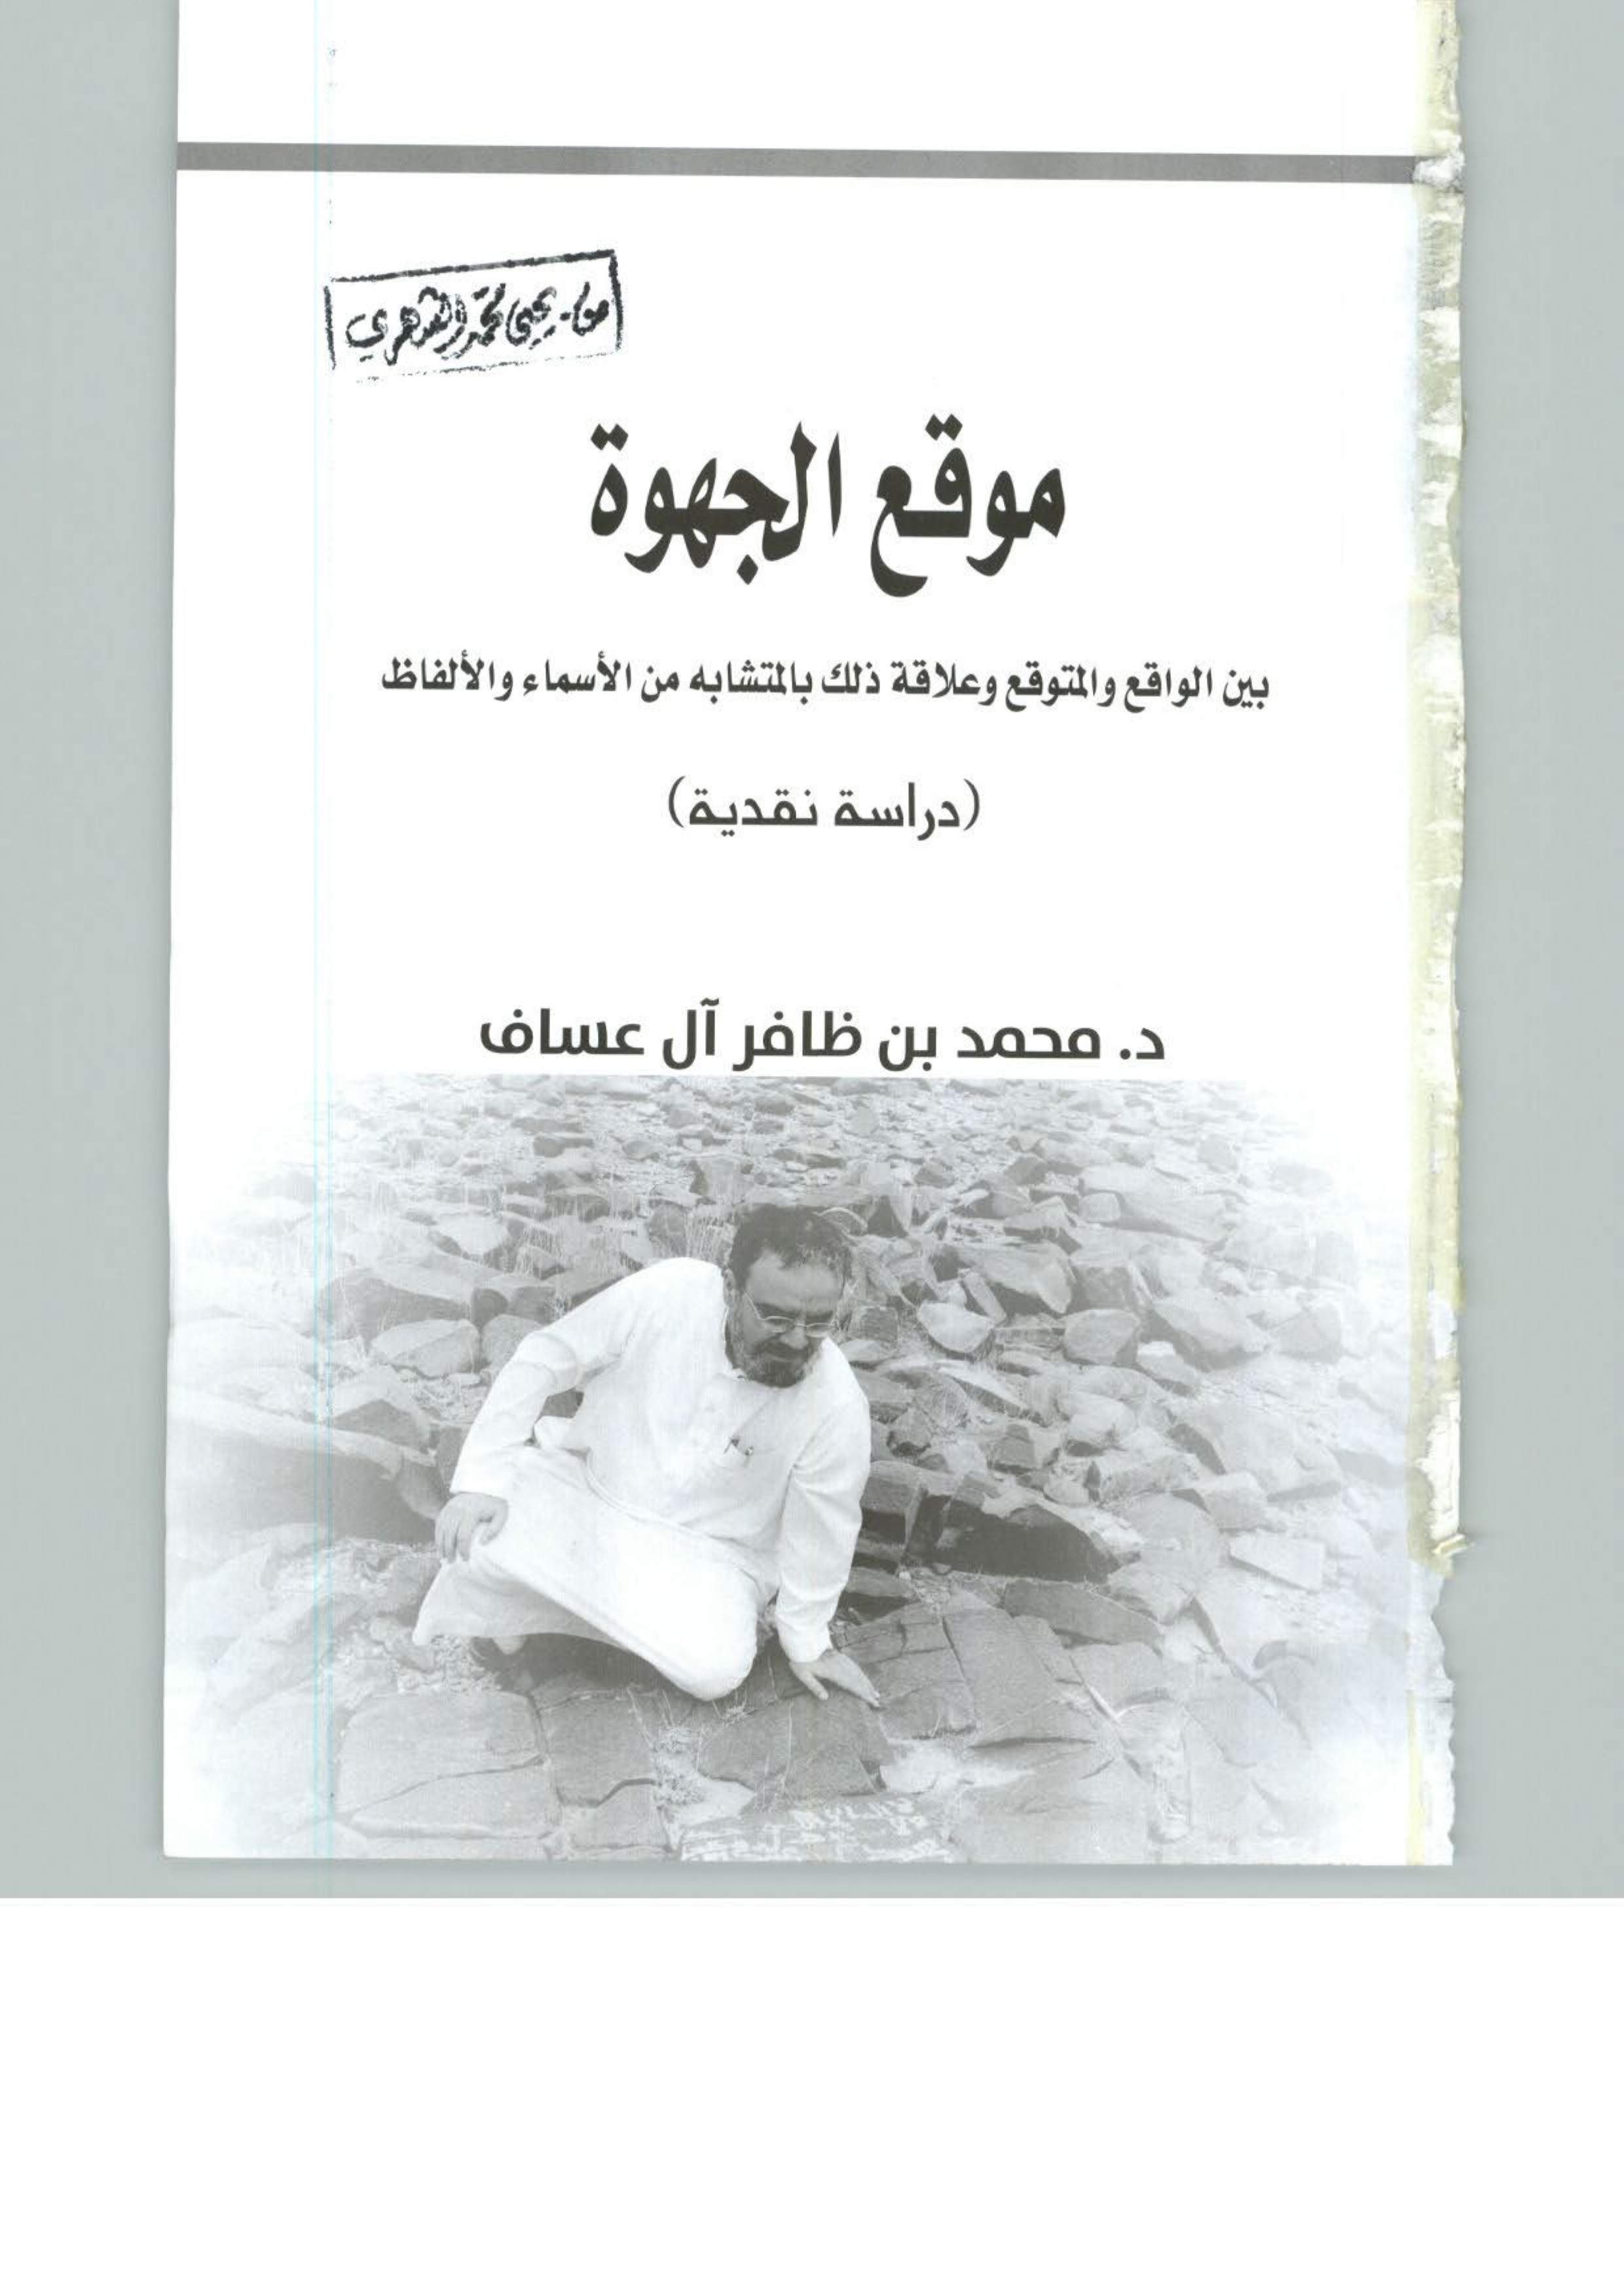 يحيى محمد الشهري
موقع الجهوة
بين الواقع والمتوقع وعلاقة ذلك بالمتشابه من الأسماء والألفاظ
(دراسة نقدية)
د. محمد بن ظافر آل عساف